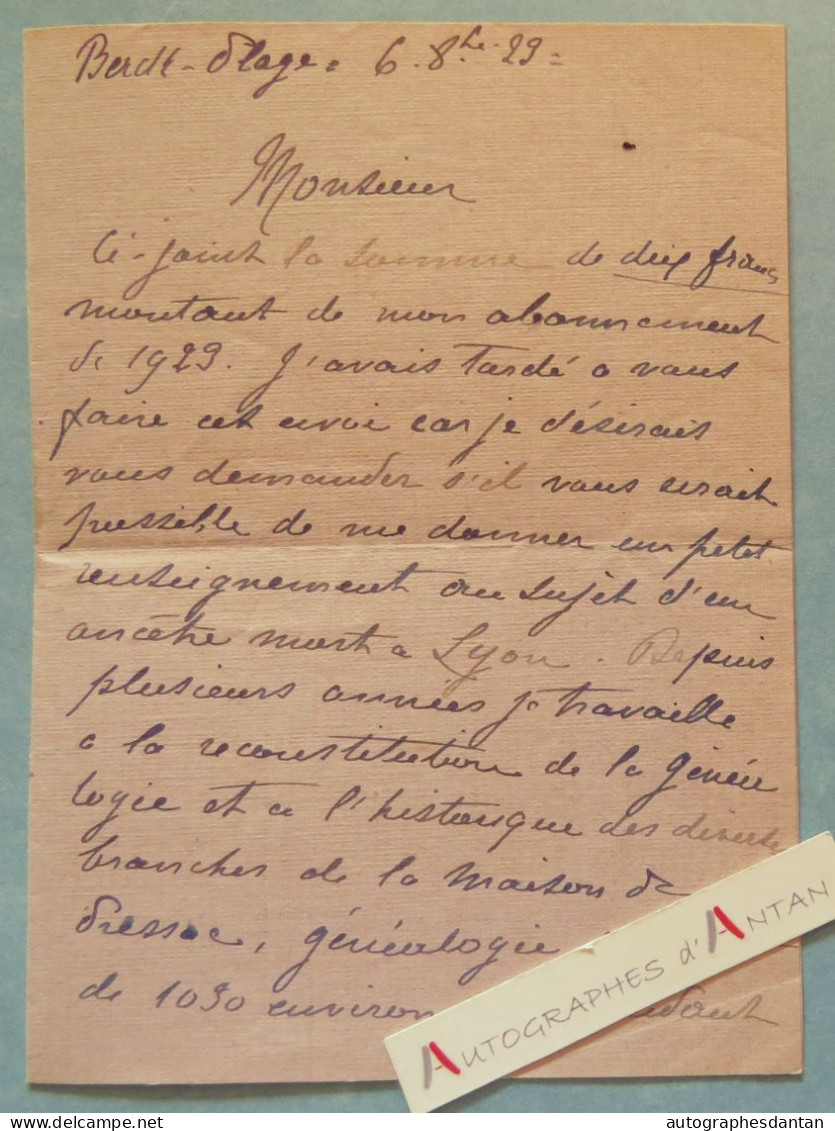 Berck-Plage = 6. 8bre. 29 =
Monsieur
Ci-joint la somme de dix francs
montant de mon abonnement
de 1929. J'avais tardé a vous
faire cet envoi car je désirais
vous demander s'il vous serait
possible de me donner un petit
renseignement au sujet d'un
ancêtre mort a Lyon. Depuis
plusieurs années je travaille
a la reconstitution de la généa
logie et a l'historique des diverses
branches de la Maison de
Pressac, généalogie
de 1090 environ
AUTOGRAPHES d'ANTAN
delcampe.net
autographesdantan